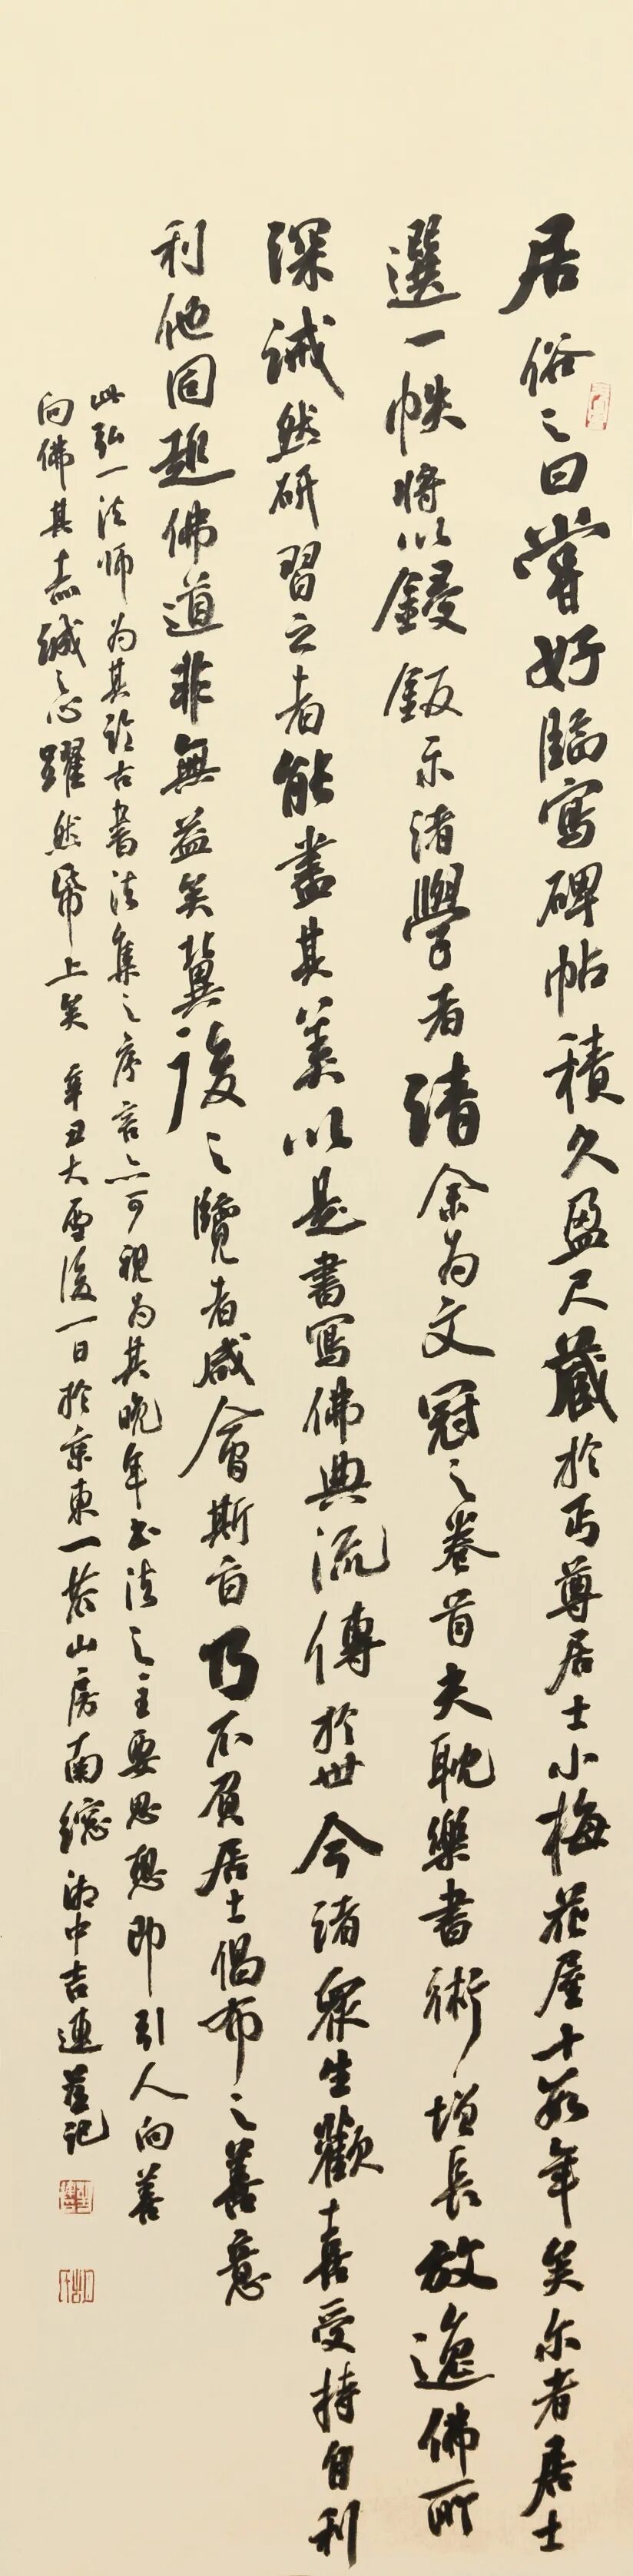 居俗之日嘗好臨寫碑帖積久盈尺藏於丏尊居士小梅花屋十數年矣尔者居士
選一帙將以鋟鈑示諸學者請余為文冠之卷首夫耽樂書術增長放逸佛所
深誡然研習之者能盡其美以是書寫佛典流傳於世令諸眾生歡喜受持自利
利他同趣佛道非無益矣冀後之覽者咸會斯旨乃不負居士倡布之善意
此弘一法師為其臨古書法集之序言亦可視為其晚年書法之主要思想即引人向善
向佛其赤誠之心躍然紙上矣 辛丑大雪後一日於京東一卷山房南窗 湖中吉連董記